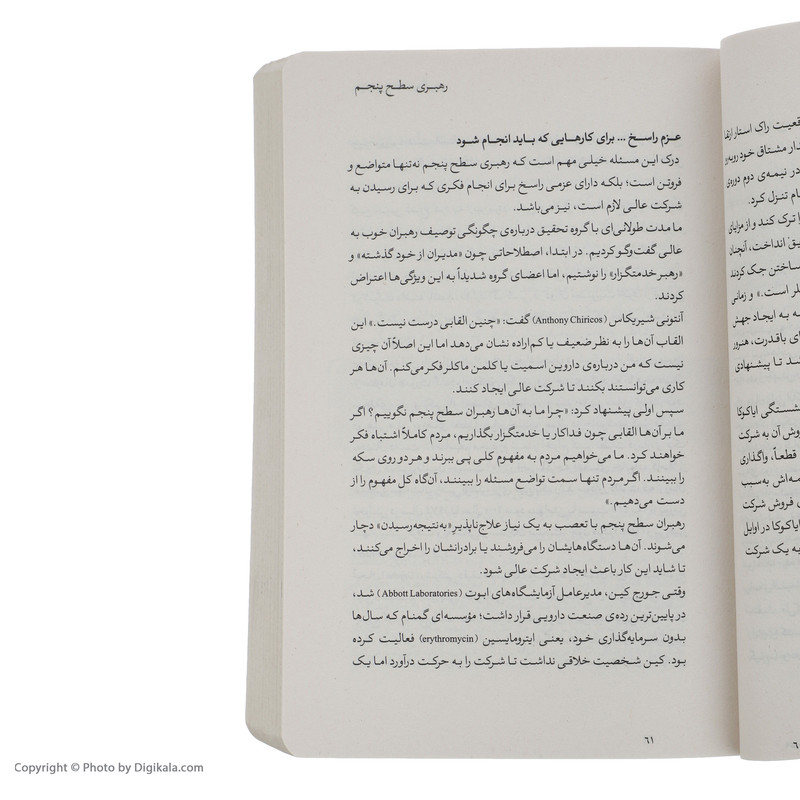 رهبری سطح پنجم
عزم راسخ ... برای کارهایی که باید انجام شود
درک این مسئله خیلی مهم است که رهبری سطح پنجم نه‌تنها متواضع و
فروتن است؛ بلکه دارای عزمی راسخ برای انجام فکری که برای رسیدن به
شرکت عالی لازم است، نیز می‌باشد.
ما مدت طولانی‌ای با گروه تحقیق درباره‌ی چگونگی توصیف رهبران خوب به
عالی گفت‌وگو کردیم. در ابتدا، اصطلاحاتی چون «مدیران از خود گذشته» و
«رهبر خدمتگزار» را نوشتیم، اما اعضای گروه شدیداً به این ویژگی‌ها اعتراض
کردند.
آنتونی شیریکاس (Anthony Chiricos) گفت: «چنین القابی درست نیست.» این
القاب آن‌ها را به نظر ضعیف یا کم‌اراده نشان می‌دهد اما این اصلاً آن چیزی
نیست که من درباره‌ی داروین اسمیت یا کلمن ماکلر فکر می‌کنم. آن‌ها هر
کاری می‌توانستند بکنند تا شرکت عالی ایجاد کنند.
سپس اولی پیشنهاد کرد: «چرا ما به آن‌ها رهبران سطح پنجم نگوییم؟ اگر
ما بر آن‌ها القابی چون فداکار یا خدمتگزار بگذاریم، مردم کاملاً اشتباه فکر
خواهند کرد. ما می‌خواهیم مردم به مفهوم کلی پی ببرند و هر دو روی سکه
را ببینند. اگر مردم تنها سمت تواضع مسئله را ببینند، آن‌گاه کل مفهوم را از
دست می‌دهیم.»
رهبران سطح پنجم با تعصب به یک نیاز علاج‌ناپذیرِ «به‌نتیجه‌رسیدن» دچار
می‌شوند. آن‌ها دستگاه‌هایشان را می‌فروشند یا برادرانشان را اخراج می‌کنند،
تا شاید این کار باعث ایجاد شرکت عالی شود.
وقتی جورج کین، مدیرعامل آزمایشگاه‌های ابوت (Abbott Laboratories) شد،
در پایین‌ترین رده‌ی صنعت دارویی قرار داشت؛ مؤسسه‌ای گمنام که سال‌ها
بدون سرمایه‌گذاری خود، یعنی ایترومایسین (erythromycin) فعالیت کرده
بود. کین شخصیت خلاقی نداشت تا شرکت را به حرکت درآورد اما یک
۶۱
قعیت راک استار
دار مشتاق خود روبه‌رو
در نیمه‌ی دوم دوره‌ی
ام تنزل کرد.
را ترک کند و از مزایای
انداخت، آنچنان
ساختن جک کردند
لر است.» و زمانی
که به ایجاد جهش
ای باقدرت، هنوز
ند تا پیشنهادی
شستگی ایاکوکا
روش آن به شرکت
قطعاً، واگذاری
مه‌اش به‌سبب
ی فروش شرکت
ایاکوکا در اوایل
به یک شرکت
Copyright © Photo by Digikala.com